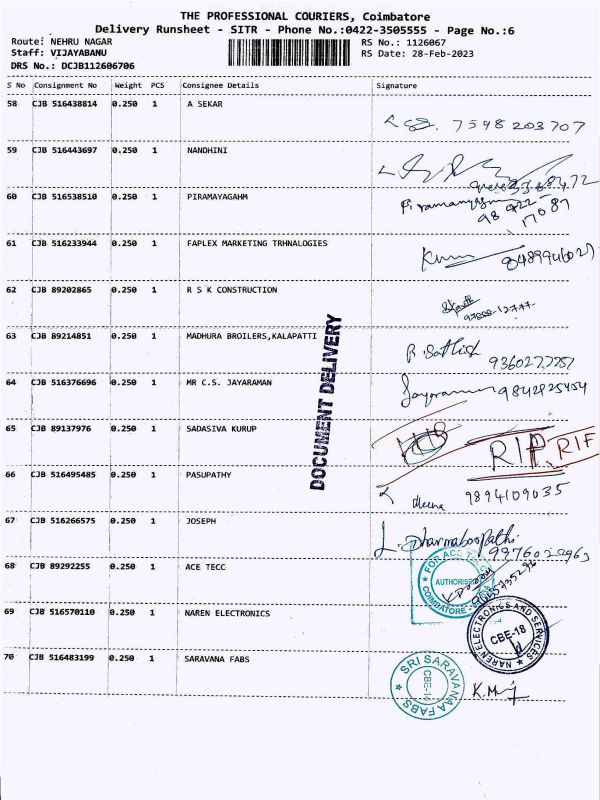 THE PROFESSIONAL COURIERS, Coimbatore
Delivery Runsheet - SITR - Phone No.:0422-3505555 - Page No.:6
Route: NEHRU NAGAR
Staff: VIJAYABANU
DRS No.: DCJB112606706
RS No.: 1126067
RS Date: 28-Feb-2023
S No Consignment No Weight PCS Consignee Details Signature
58 CJB 516438814 0.250 1 A SEKAR
7548203707
59 CJB 516443697 0.250 1 NANDHINI
60 CJB 516538510 0.250 1 PIRAMAYAGAHM
61 CJB 516233944 0.250 1 FAPLEX MARKETING TRHNALOGIES
62 CJB 89202865 0.250 1 R S K CONSTRUCTION
63 CJB 89214851 0.250 1 MADHURA BROILERS,KALAPATTI
R. Sathish
64 CJB 516376696 0.250 1 MR C.S. JAYARAMAN
Jayaraman 9842925454
65 CJB 89137976 0.250 1 SADASIVA KURUP
RIP. RIF
66 CJB 516495485 0.250 1 PASUPATHY
Meena 9894109035
67 CJB 516266575 0.250 1 JOSEPH
L. Dharmaboopathi
68 CJB 89292255 0.250 1 ACE TECC
FOR ACE
AUTHORISE
COIMBATORE
69 CJB 516570110 0.250 1 NAREN ELECTRONICS
NAREN ELECTRONICS AND SERVICES
CBE-18
70 CJB 516483199 0.250 1 SARAVANA FABS
SRI SARAVANAA FABS
K.M
DOCUMENT DELIVERY